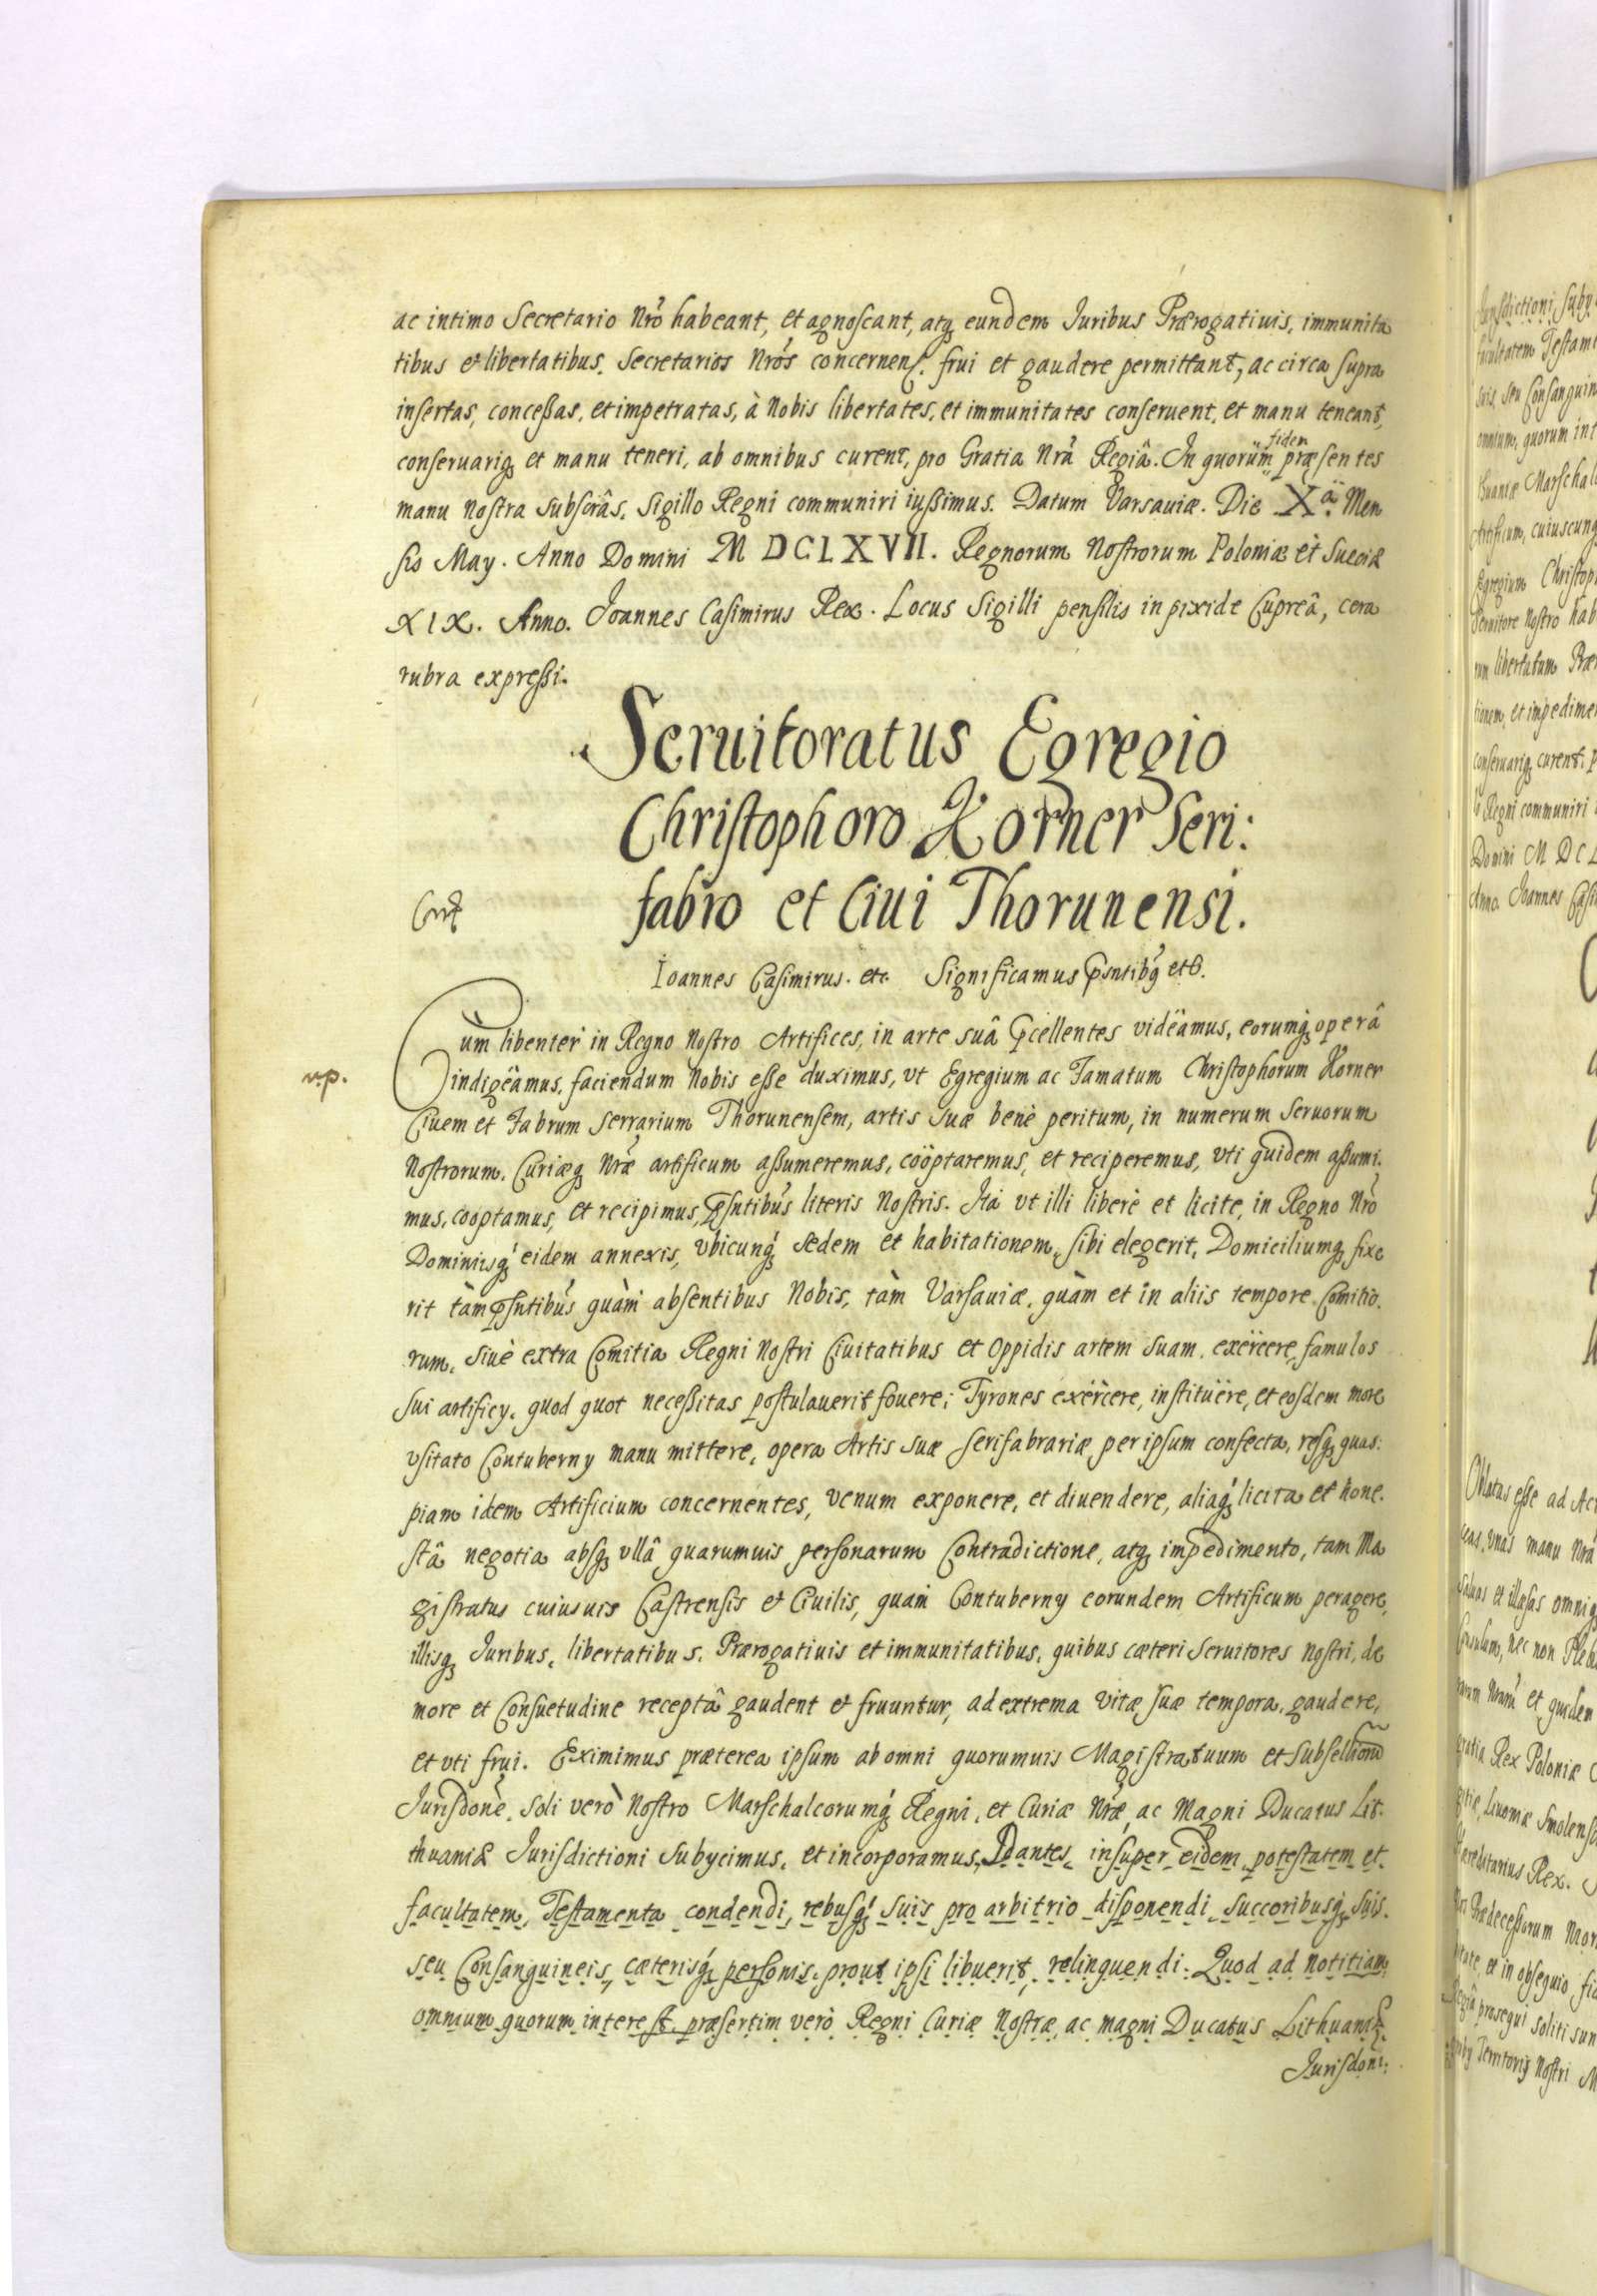 ac intimo Secretario Nrõ habeant, et agnoscant, atq; eundem Iuribus Prærogatiuis, immunita
tibus et libertatibus. Secretarios Nrõs concernen. frui et gaudere permittant, ac circa supra
insertas, concessas, et impetratas, à Nobis libertates, et immunitates conseruent, et manu teneant,
conseruariq; et manu teneri, ab omnibus curent, pro Gratia Nrã Regiâ. In quorum fidem præsentes
manu Nostra subscrãs. Sigillo Regni communiri iussimus. Datum Varsauiæ. Die Xª. Men
sis May. Anno Domini M DCLXVII. Regnorum Nostrorum Poloniæ et Sueciæ
XIX. Anno. Joannes Casimirus Rex. Locus Sigilli pensilis in pixide Cupreâ, cera
rubra expressi.
Seruitoratus Egregio
Christophoro Korner Seri:
fabro et Ciui Thorunensi.
Ioannes Casimirus. etc. Significamus Pṣntibq̃ etc.
Cùm libenter in Regno Nostro Artifices, in arte suâ Pcellentes videamus, eorumq; operâ
indigeamus, faciendum Nobis esse duximus, vt Egregium ac Famatum Christophorum Korner
np.
Ciuem et Fabrum Serrarium Thorunensem, artis suæ benè peritum, in numerum Seruorum
Nostrorum. Curiæq; Nræ artificum assumeremus, cooptaremus, et reciperemus, vti quidem assumi.
mus, cooptamus, et recipimus, Psntibus literis Nostris. Ità vt illi liberè et licite, in Regno Nrõ
Dominiisq; eidem annexis, vbicunq; sedem et habitationem sibi elegerit, Domiciliumq; fixe
rit tàm psntibus quàm absentibus Nobis, tàm Varsauiæ, quàm et in aliis tempore Comitio.
rum, siuè extra Comitia Regni Nostri Ciuitatibus et Oppidis artem suam exercere, famulos
sui artificy, quod quot necessitas postulauerit fouere; Tyrones exercere, instituere, et eosdem more
vsitato Contuberny manu mittere, opera Artis suæ serifabrariæ per ipsum confecta, resq; quas:
piam idem Artificium concernentes, venum exponere, et diuendere, aliaq; licita et hone.
stâ negotia absq; vllâ quarumuis personarum Contradictione, atq; impedimento, tam Ma
gistratus cuiusuis Castrensis et Ciuilis, quàm Contuberny eorundem Artificum peragere,
illisq; Iuribus, libertatibus. Prærogatiuis et immunitatibus, quibus cæteri Seruitores Nostri, de
more et Consuetudine receptâ gaudent et fruuntur, ad extrema vitæ suæ tempora, gaudere,
et vti frui. Eximimus præterea ipsum ab omni quorumuis Magistratuum et Subselliorũ
Jurisdonẽ, soli verò Nostro Marschalcorumq; Regni, et Curiæ Nræ, ac Magni Ducatus Lit.
thuaniæ Jurisdictioni Subycimus, et incorporamus. Dantes insuper eidem potestatem et
facultatem, Testamenta condendi, rebusq; suis pro arbitrio disponendi, succoribusq; suis.
seu Consanguineis, cæterisq; personis, prout ipsi libuerit, relinquendi. Quod ad notitiam
omnium quorum interest, præsertim verò Regni Curiæ Nostræ, ac magni Ducatus Lithuaniæ
Jurisdoni: